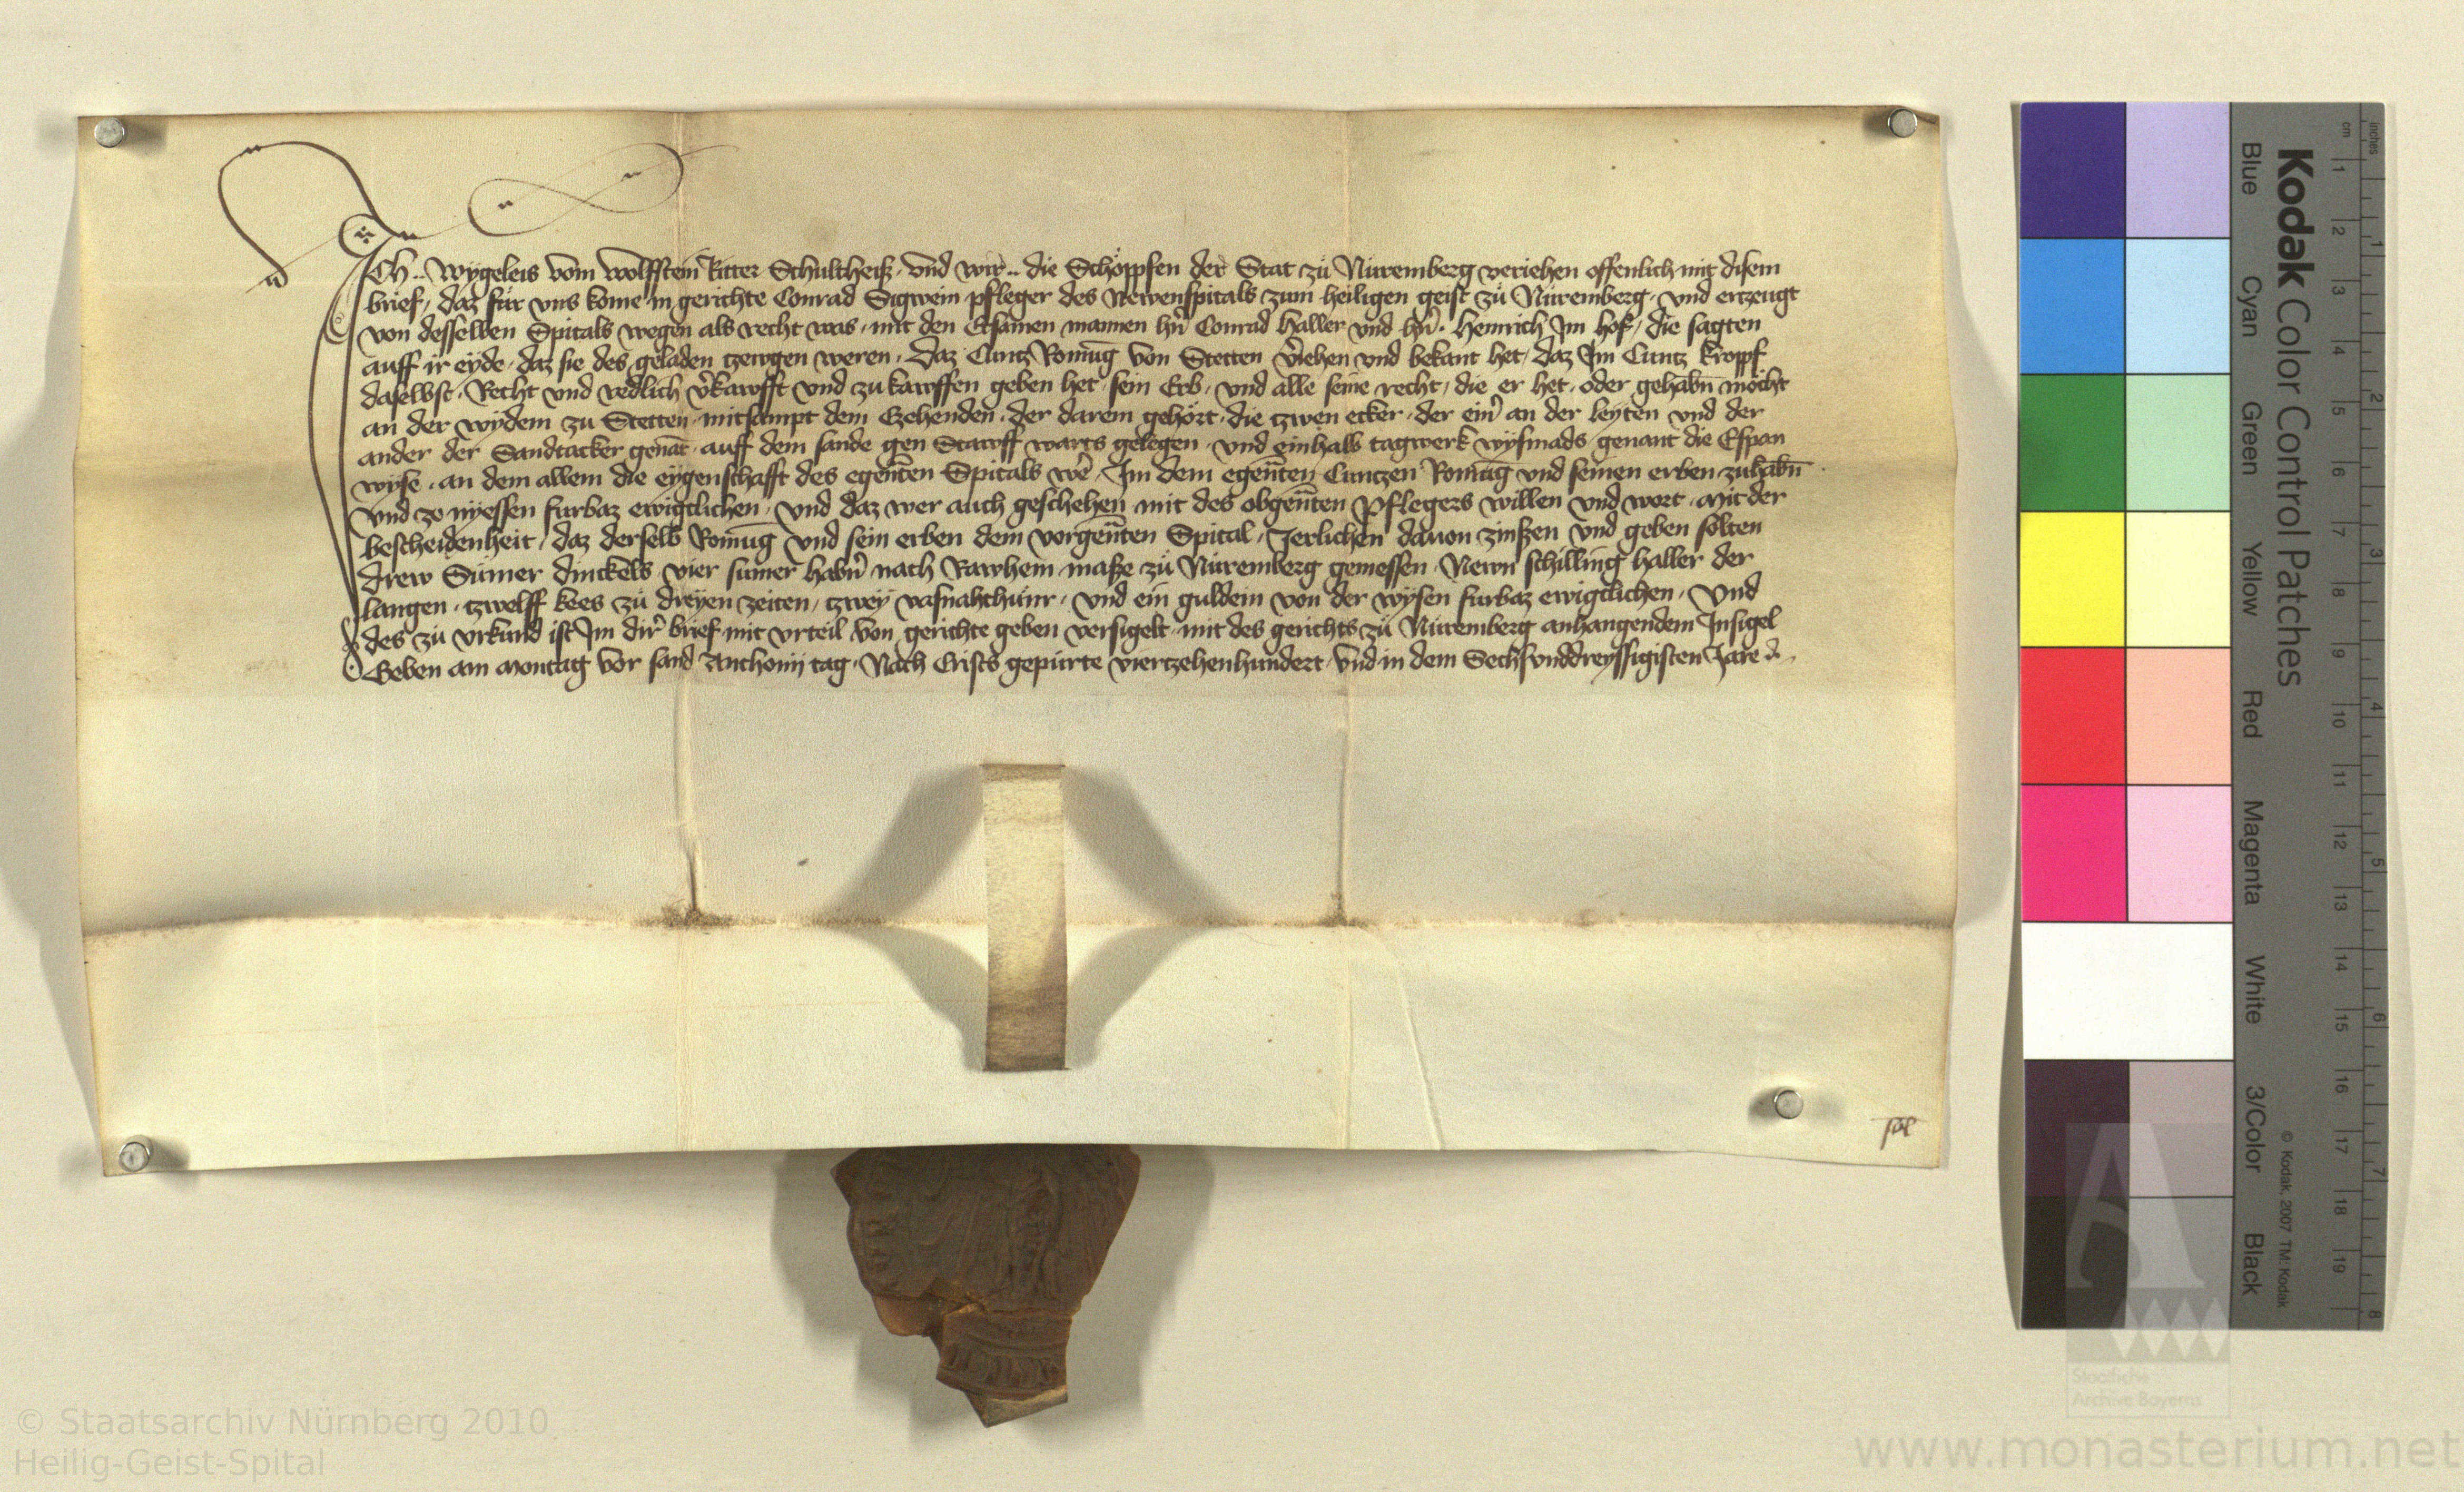 Ich .. Wygeleis vom Wolffstein Ritter Schultheiß, vnd wir .. die Schöppfen der Stat zů Nüremberg veriehen offenlich mit disem
brief, daz für vns kome in gerichte Conrad Sigwein pfleger des Newenspitals zum heiligen geist zů Nüremberg, vnd ertzeugt
von desselben Spitals wegen als recht was, mit den Ersamen mannen hn̄ Conrad Haller vnd hn̄. Heinrich Im hof, die sagten
auff ir eyde, daz sie des geladen tzewgen weren, Daz Cuntz Romūg von Stetten v̄iehen vnd bekant het, daz Im Cuntz Kropf
daselbst, Recht vnd redlich v̄kawfft vnd zu kawffen geben het, sein Erb, vnd alle seine recht, die er het, oder gehabn̄ möcht
an der wydem zu Stetten, mitsampt dem Czehenden, der darein gehört, die tzwen ecker, der ein̄ an der leyten vnd der
ander der Sandtacker genāt, auff dem sande gen Stawff warts gelegen, vnd einhalb tagwerk wysmads, genant die Espan
wyse, an dem allem die eygenschafft des egen̄ten Spitals wē, Im dem egen̄ten Cuntzen Romūg vnd seinen erben zuhabn̄
vnd ze nyessen furbaz ewigclichen, vnd daz wer auch geschehen mit des obgen̄ten Pflegers willen vnd wort, Mit der
bescheidenheit, daz derselb Romūg vnd sein erben dem vorgen̄ten Spital, Jerlichen dauon zinßen vnd geben solten
drew Sümer dinckels vier sumer habn̄ nach Rawhem maße zů Nüremberg gemessen, Newn schilling haller der
langen, tzwelff kees zů dreyen zeiten, tzwey vasnahthünr, vnd ein guldein von der wysen furbaz ewigclichen, Vnd
des zů vrkund ist Im dir̄ brief mit vrteil von gerichte geben versigelt mit des gerichts zů Nüremberg anhangendem Insigel
Geben am Montag vor sand Anthonij tag, Nach Crists gepurte viertzehenhundert, vnd in dem Sechsvnddreyssigisten Jare
Kodak Color Control Patches
Blue Cyan Green Yellow Red Magenta White 3/Color Black
© Kodak, 2007 TM: Kodak
cm 1 2 3 4 5 6 7 8 9 10 11 12 13 14 15 16 17 18 19
inches 1 2 3 4 5 6 7 8
Staatliche
Archive Bayerns
© Staatsarchiv Nürnberg 2010
Heilig-Geist-Spital
www.monasterium.net